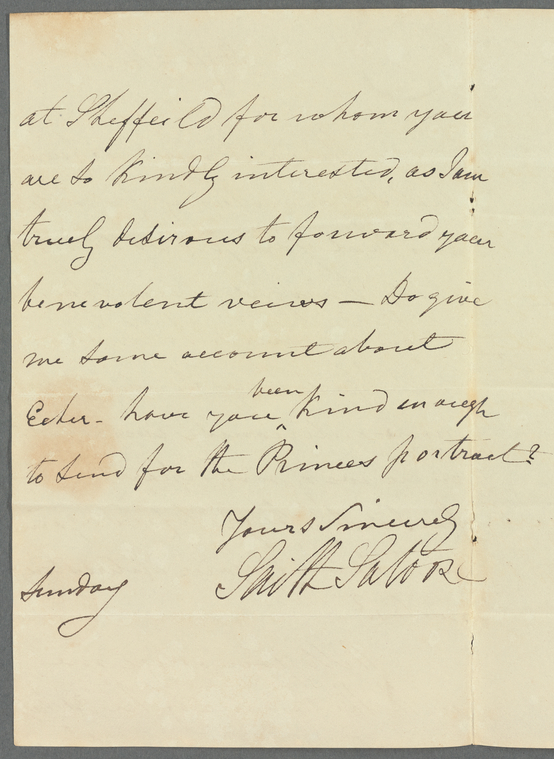 at Sheffeild for whom you
are so kindly interested, as I am
truely desirous to forward your
benevolent veiws — Do give
me some account about
have you been kind enough
to send for the Princes portrait?
Yours Sincerely
Sunday